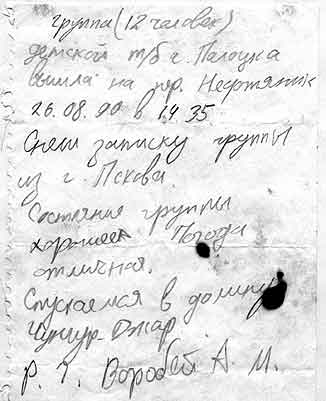 группа (12 человек)
детской т/б г. Полоцка
вышла на пер. Нефтяник
26.08.90 в 14 35.
Сняли записку группы
из г. Пскова
Состояние группы
хорошее Погода
отличная.
Спускаемся в долину
Чунгур-Джар
Р. Г. Воробей А. М.